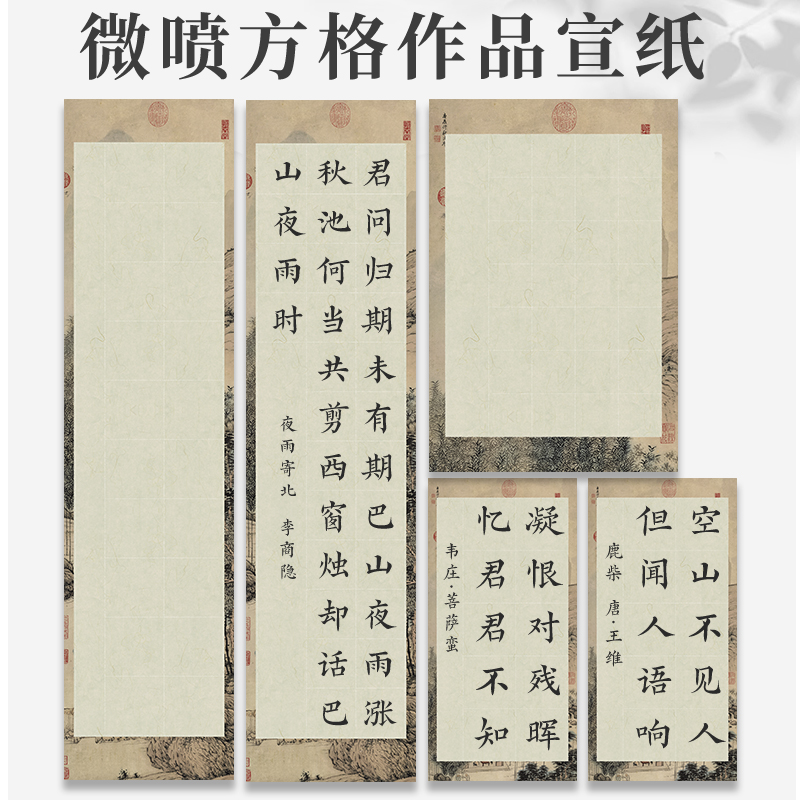 微喷方格作品宣纸
君问归期未有期巴山夜雨涨
秋池何当共剪西窗烛却话巴
山夜雨时
夜雨寄北 李商隐
凝恨对残晖
忆君君不知
韦庄·菩萨蛮
空山不见人
但闻人语响
鹿柴 唐·王维